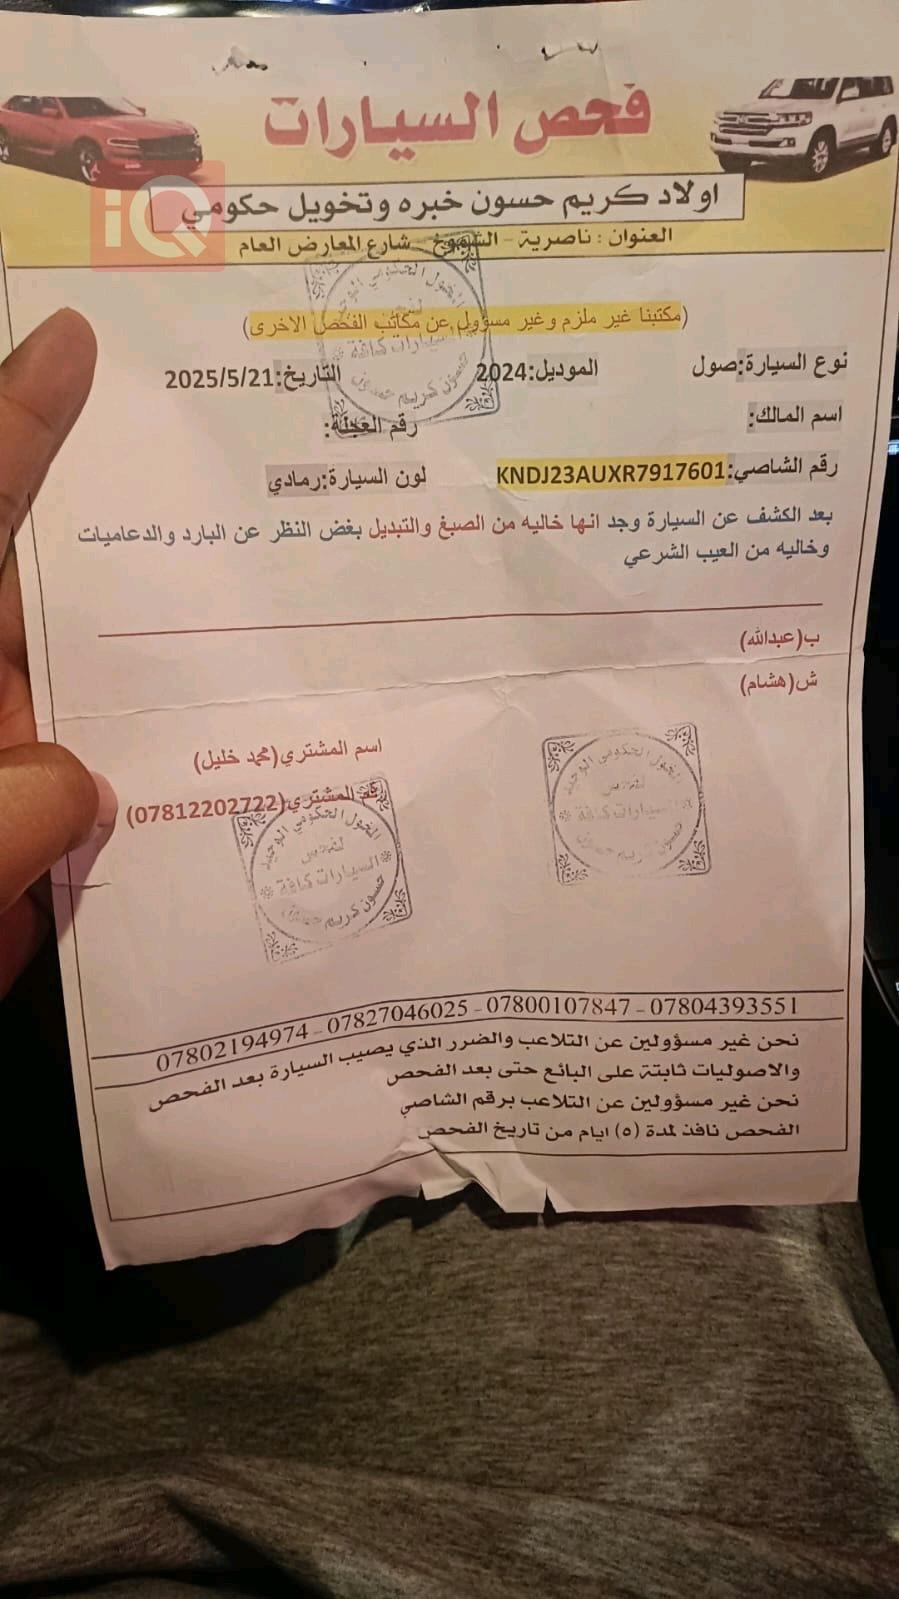 فحص السيارات
iQ
اولاد كريم حسون خبره وتخويل حكومي
العنوان : ناصرية - الشموخ - شارع المعارض العام
(مكتبنا غير ملزم وغير مسؤول عن مكاتب الفحص الاخرى)
نوع السيارة:صول الموديل:2024 التاريخ:2025/5/21
اسم المالك: رقم العجلة:
رقم الشاصي:KNDJ23AUXR7917601 لون السيارة:رمادي
بعد الكشف عن السيارة وجد انها خاليه من الصبغ والتبديل بغض النظر عن البارد والدعاميات
وخاليه من العيب الشرعي
ب(عبدالله)
ش(هشام)
اسم المشتري(محمد خليل)
رقم المشتري(07812202722)
المخول الحكومي الوحيد
لفحص
السيارات كافة
حسون كريم حسون
07802194974 - 07827046025 - 07800107847 - 07804393551
نحن غير مسؤولين عن التلاعب والضرر الذي يصيب السيارة بعد الفحص
والاصوليات ثابتة على البائع حتى بعد الفحص
نحن غير مسؤولين عن التلاعب برقم الشاصي
الفحص نافذ لمدة (٥) ايام من تاريخ الفحص